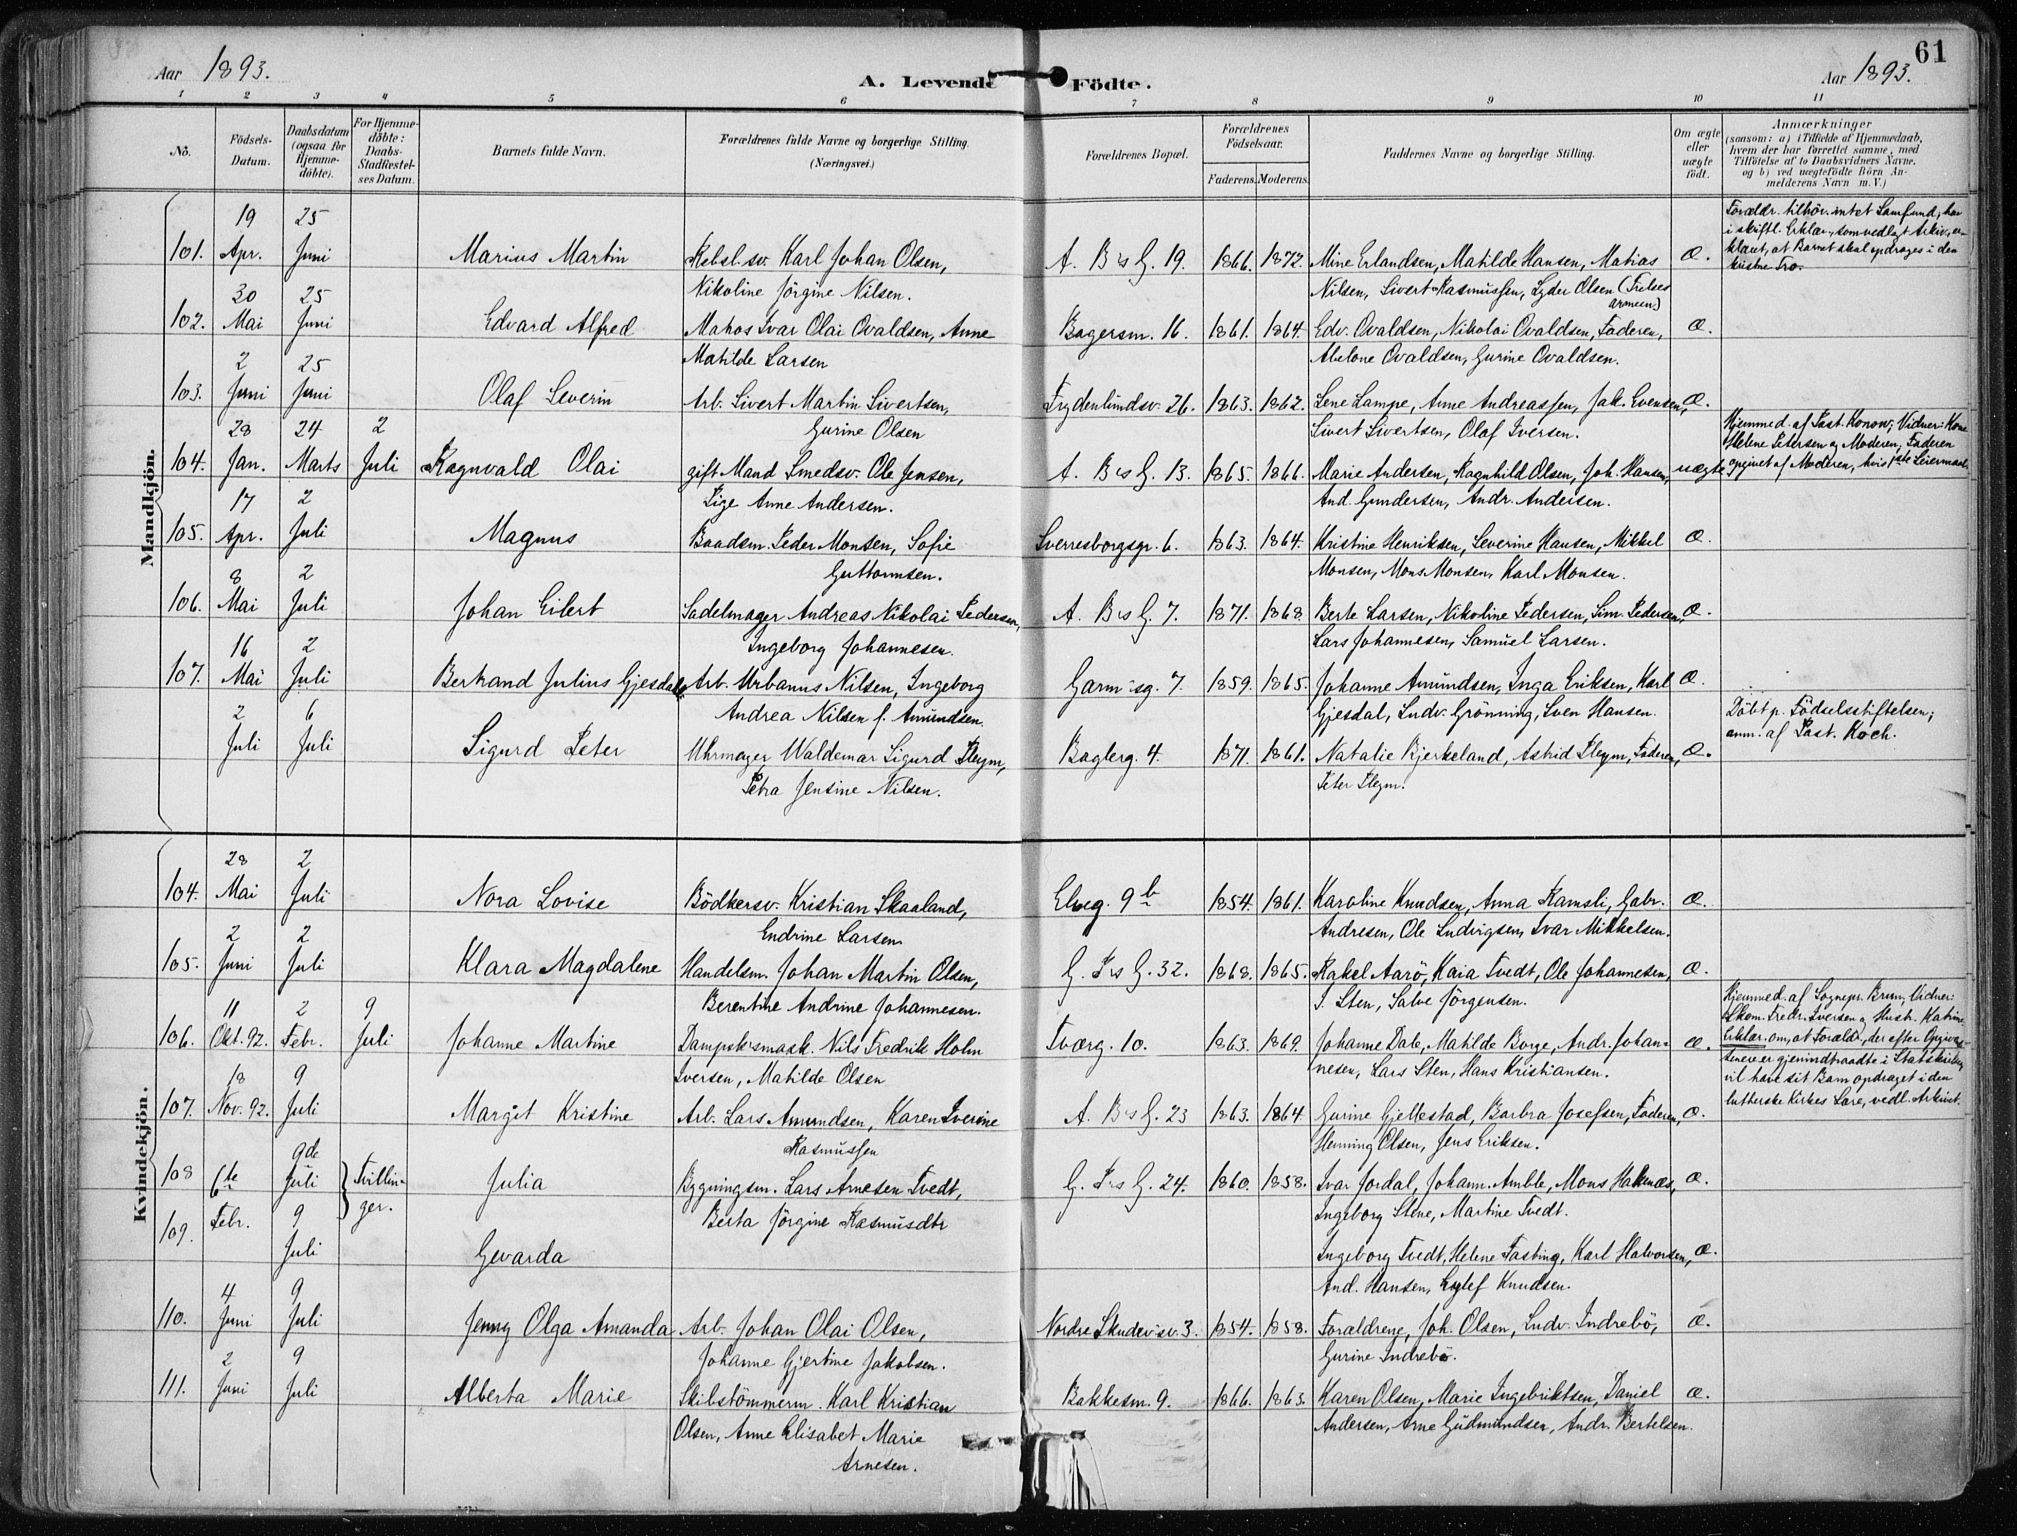 61
Aar 1893.
A. Levende Födte.
Aar 1893.
1 2 3 4 5 6 7 8 9 10 11
No.
Födsels-Datum.
Daabsdatum (ogsaa for Hjemme-döbte).
For Hjemme-döbte: Daabs-Stadfæstel-ses Datum.
Barnets fulde Navn.
Forældrenes fulde Navne og borgerlige Stilling. (Næringsvei.)
Forældrenes Bopæl.
Forældrenes Födselsaar.
Faderens. Moderens.
Faddernes Navne og borgerlige Stilling.
Om ægte eller uægte födt.
Anmærkninger
(saasom: a) i Tilfælde af Hjemmedaab, hvem der har forrettet samme, med Tilföielse af to Daabsvidners Navne, og b) ved uægtefödte Börn Anmelderens Navn m. V.)
Mandkjön.
101. 19 Apr. 25 Juni Marius Martin
Karl Johan Olsen,
Nikoline Jörgine Nilsen.
A. B s G. 19. 1866. 1872.
Mine Erlandsen, Matilde Hansen, Matias
Nilsen, Sivert Rasmussen, Lyder Olsen (Frelses
armeen)
Æ.
Forældr. tilhör. intet Samfund, har
i skriftl. Erklær., som vedlagt Arkiv, er-
klæret, at Barnet skal opdrages i den
kristne Tro.
102. 30 Mai 25 Juni Edvard Alfred
Matros Ivar Olai Ovaldsen, Anne
Matilde Larsen
Bagersm. 16. 1861. 1864.
Edv. Ovaldsen, Nikolai Ovaldsen, Faderen,
Abelone Ovaldsen, Gurine Ovaldsen.
Æ.
103. 2 Juni 25 Juni Olaf Severin
Arb. Sivert Martin Sivertsen,
Gurine Olsen
Frydenlundsv. 26. 1863. 1862.
Lene Lampe, Anne Andreassen, Jak. Evensen,
Sivert Sivertsen, Olaf Iversen.
Æ.
104. 28 Jan. 24 Marts 2 Juli Ragnvald Olai
gift Mand Smedsv. Ole Jensen,
Pige Anne Andersen.
A. B s G. 13. 1865. 1866.
Marie Andersen, Ragnhild Olsen, Joh. Hansen,
And. Gundersen, Andr. Andersen.
uægte
Hjemmed. af Past. Konow; Vidner: Kone
Helene Pedersen og Moderen, Faderen
opgivet af Moderen, hvis 1ste Leiermaal
105. 17 Apr. 2 Juli Magnus
Baadsm. Peder Monsen, Sofie
Guttormsen.
Sverresborgsgr. 6. 1863. 1864.
Kristine Henriksen, Severine Hansen, Mikkel
Monsen, Mons Monsen, Karl Monsen.
Æ.
106. 8 Mai 2 Juli Johan Eilert
Sadelmager Andreas Nikolai Pedersen,
Ingeborg Johannesen.
A. B s G. 7. 1871. 1868.
Berte Larsen, Nikoline Pedersen, Sim. Pedersen,
Lars Johannesen, Samuel Larsen.
Æ.
107. 16 Mai 2 Juli Bertrand Julius Gjesdal
Arb. Urbanus Nilsen, Ingeborg
Andrea Nilsen f. Amundsen.
Garm.sg. 7. 1859. 1865.
Johanne Amundsen, Inga Eriksen, Karl
Gjesdal, Ludv. Grönning, Sven Hansen.
Æ.
2 Juli 6 Juli Sigurd Peter
Uhrmager Waldemar Sigurd Pleym,
Petra Jensine Nilsen.
Baglerg. 4. 1871. 1861.
Natalie Bjerkeland, Astrid Pleym, Faderen,
Peter Pleym.
Æ.
Döbt p. Födselsstiftelsen;
anm. af Past. Koch.
Kvindekjön.
104. 28 Mai 2 Juli Nora Lovise
Bödkersv. Kristian Skaaland,
Endrine Larsen
Elveg. 9 b 1854. 1861.
Karoline Knudsen, Anna Ramsli, Gabr.
Andresen, Ole Ludvigsen, Ivar Mikkelsen.
Æ.
105. 2 Juni 2 Juli Klara Magdalene
Handelsm. Johan Martin Olsen,
Berentine Andrine Johannesen.
G. K s G. 32. 1868. 1865.
Rakel Aarö, Kaia Tvedt, Ole Johannesen,
S. Sten, Salve Jörgensen.
Æ.
106. 11 Okt. 92. 2 Febr. 9 Juli Johanne Martine
Dampsk.smask. Nils Fredrik Holm
Iversen, Matilde Olsen
Tværg. 10. 1863. 1869.
Johanne Dale, Matilde Borge, Andr. Johan-
nesen, Lars Sten, Hans Kristiansen.
Æ.
Hjemmed. af Sognepr. Brun; Vidner:
Skom. Fredr. Iversen og Hust. Katrine.
Erklær. om, at Foræld., der efter Opgiven-
deres er gjenindtraadte i Statskirken,
vil have sit Barn opdraget i den
lutherske Kirkes Lære, vedl. Arkivet.
107. 18 Nov. 92. 9 Juli Margit Kristine
Arb. Lars Amundsen, Karen Iverine
Rasmussen
A. B s G. 23 1863. 1864
Gurine Gjellestad, Barbra Josefsen, Faderen,
Henning Olsen, Jens Eriksen.
Æ.
108 6te Febr. 9de Juli } Tvillin-
ger. Julia
Bygningsm. Lars Arnesen Tvedt,
Berta Jörgine Rasmusdtr
G. K s G. 24. 1860. 1858.
Ivar Jordal, Johann. Amble, Mons Haknæs,
Ingeborg Stene, Martine Tvedt.
Æ.
109. 9 Juli Gevarda
Ingeborg Tvedt, Helene Fasting, Karl Halvorsen,
And. Hansen, Eylef Knudsen.
Æ.
110. 4 Juni 9 Juli Jenny Olga Amanda
Arb. Johan Olai Olsen,
Johanne Gjertine Jakobsen.
Nordre Skudev.sv. 3. 1854. 1858.
Forældrene, Joh. Olsen, Ludv. Indrebö,
Gurine Indrebö.
Æ.
111. 2 Juni 9 Juli Alberta Marie
Skibstömmerm. Karl Kristian
Olsen, Anne Elisabet Marie
Arnesen.
Bakkesm. 9. 1866. 1863.
Karen Olsen, Marie Ingebriktsen, Daniel
Andersen, Arne Gudmundsen, Andr. Bertelsen.
Æ.